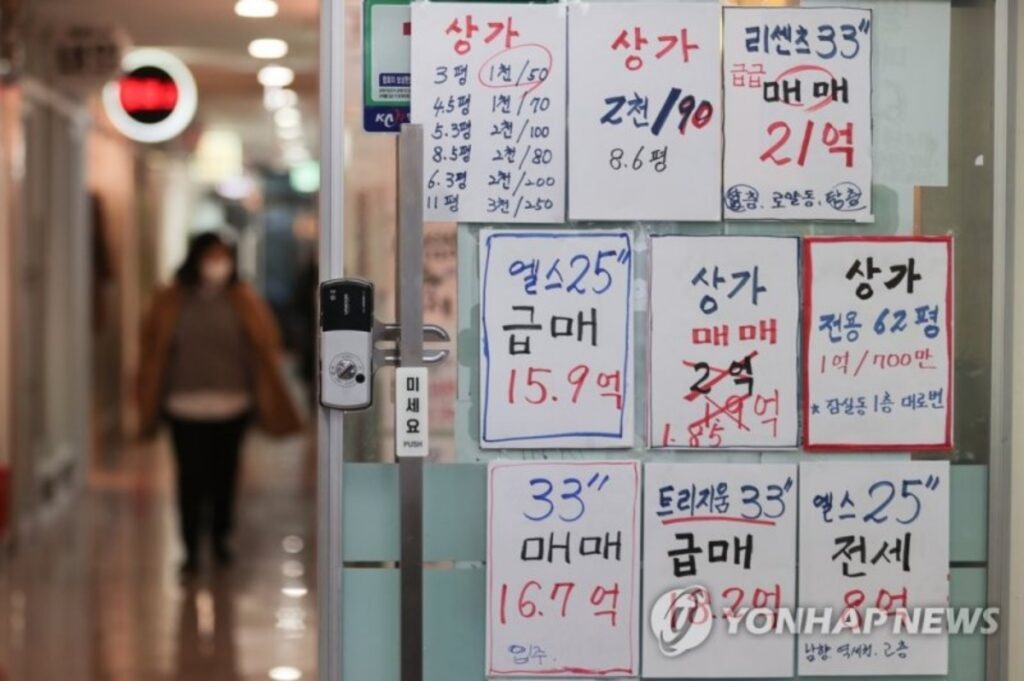 상가
3평 1천/50
4.5평 1천/70
5.3평 2천/100
8.5평 2천/80
6.3평 2천/200
11평 3천/250
상가
2천/90
8.6평
리센츠 33"
급급
매매
21억
로얄동.
엘스 25"
급매
15.9억
상가
매매
2억
1.9억
1.85
상가
전용 62평
1억/700만
* 잠실동 1층 대로변
미세요
PUSH
33"
매매
16.7억
입주.
트리지움 33"
급매
18.2억
엘스 25"
전세
8억
남향 역세권. 고층
YONHAP NEWS